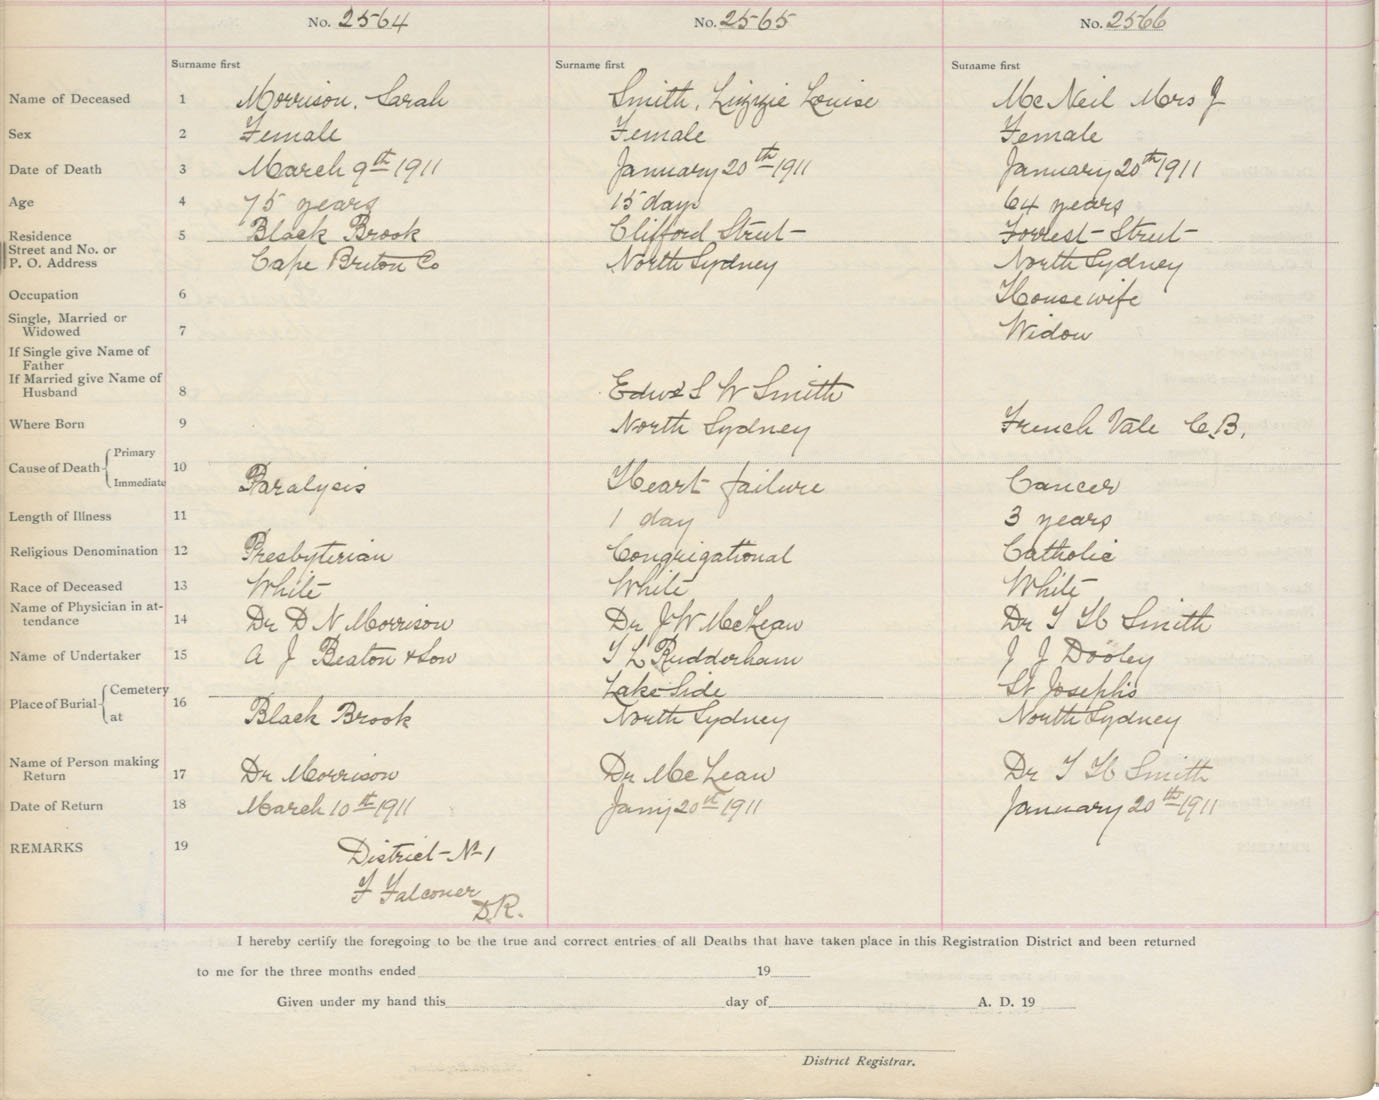 No. 2564 No. 2565 No. 2566
Surname first Surname first Surname first
Name of Deceased 1 Morrison, Sarah Smith, Lizzie Louise McNeil Mrs J
Sex 2 Female Female Female
Date of Death 3 March 9th 1911 January 20th 1911 January 20th 1911
Age 4 75 years 15 days 64 years
Residence 5 Black Brook Clifford Street Forrest Street
Street and No. or
P. O. Address Cape Breton Co North Sydney North Sydney
Occupation 6 Housewife
Single, Married or
Widowed 7 Widow
If Single give Name of
Father
If Married give Name of
Husband 8 Edwd S W Smith
Where Born 9 North Sydney French Vale C.B.
Cause of Death Primary 10
Immediate Paralysis Heart failure Cancer
Length of Illness 11 1 day 3 years
Religious Denomination 12 Presbyterian Congrigational Catholic
Race of Deceased 13 White White White
Name of Physician in at-
tendance 14 Dr D N Morrison Dr J W McLean Dr T H Smith
Name of Undertaker 15 A J Beaton & Son T L Rudderham J J Dooley
Place of Burial Cemetery 16 Lake Side St Joseph's
at Black Brook North Sydney North Sydney
Name of Person making
Return 17 Dr Morrison Dr McLean Dr T H Smith
Date of Return 18 March 10th 1911 Jany 20th 1911 January 20th 1911
REMARKS 19 District N 1
F Falconer
D.R.
I hereby certify the foregoing to be the true and correct entries of all Deaths that have taken place in this Registration District and been returned
to me for the three months ended 19
Given under my hand this day of A. D. 19
District Registrar.